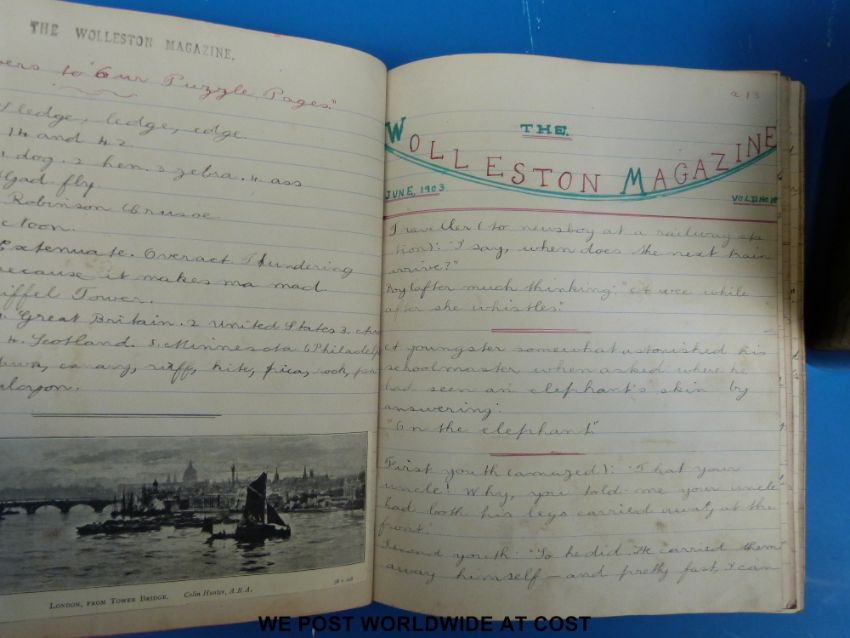 THE WOLLESTON MAGAZINE.
to "Our Puzzle Pages."
ledge, ledge, edge.
14 and 42
dog. 2 hen. 3 zebra. 4 ass
Gad fly.
Robinson Crusoe
Extenuate. Overact Thundering
because it makes ma mad
Eiffel Tower.
Great Britain. 2 United States 3.
4. Scotland 5. Minnesota 6 Philadelp
canary, ruff, kite, pica, rook,
LONDON, FROM TOWER BRIDGE. Colin Hunter, A.R.A.
213
THE.
WOLLESTON MAGAZINE
JUNE, 1903
VOL.II No
Traveller (to newsboy at a railway sta
tion): "I say, when does the next train
arrive?"
Boy (after much thinking): "A wee while
after she whistles."
A youngster somewhat astonished his
schoolmaster when asked where he
had seen an elephant's skin by
answering:
"On the elephant"
First youth (amazed): "That your
uncle! Why, you told me your uncle
had both his legs carried away at the
front.
Second youth: "So he did. He carried them
away himself – and pretty fast I can
WE POST WORLDWIDE AT COST